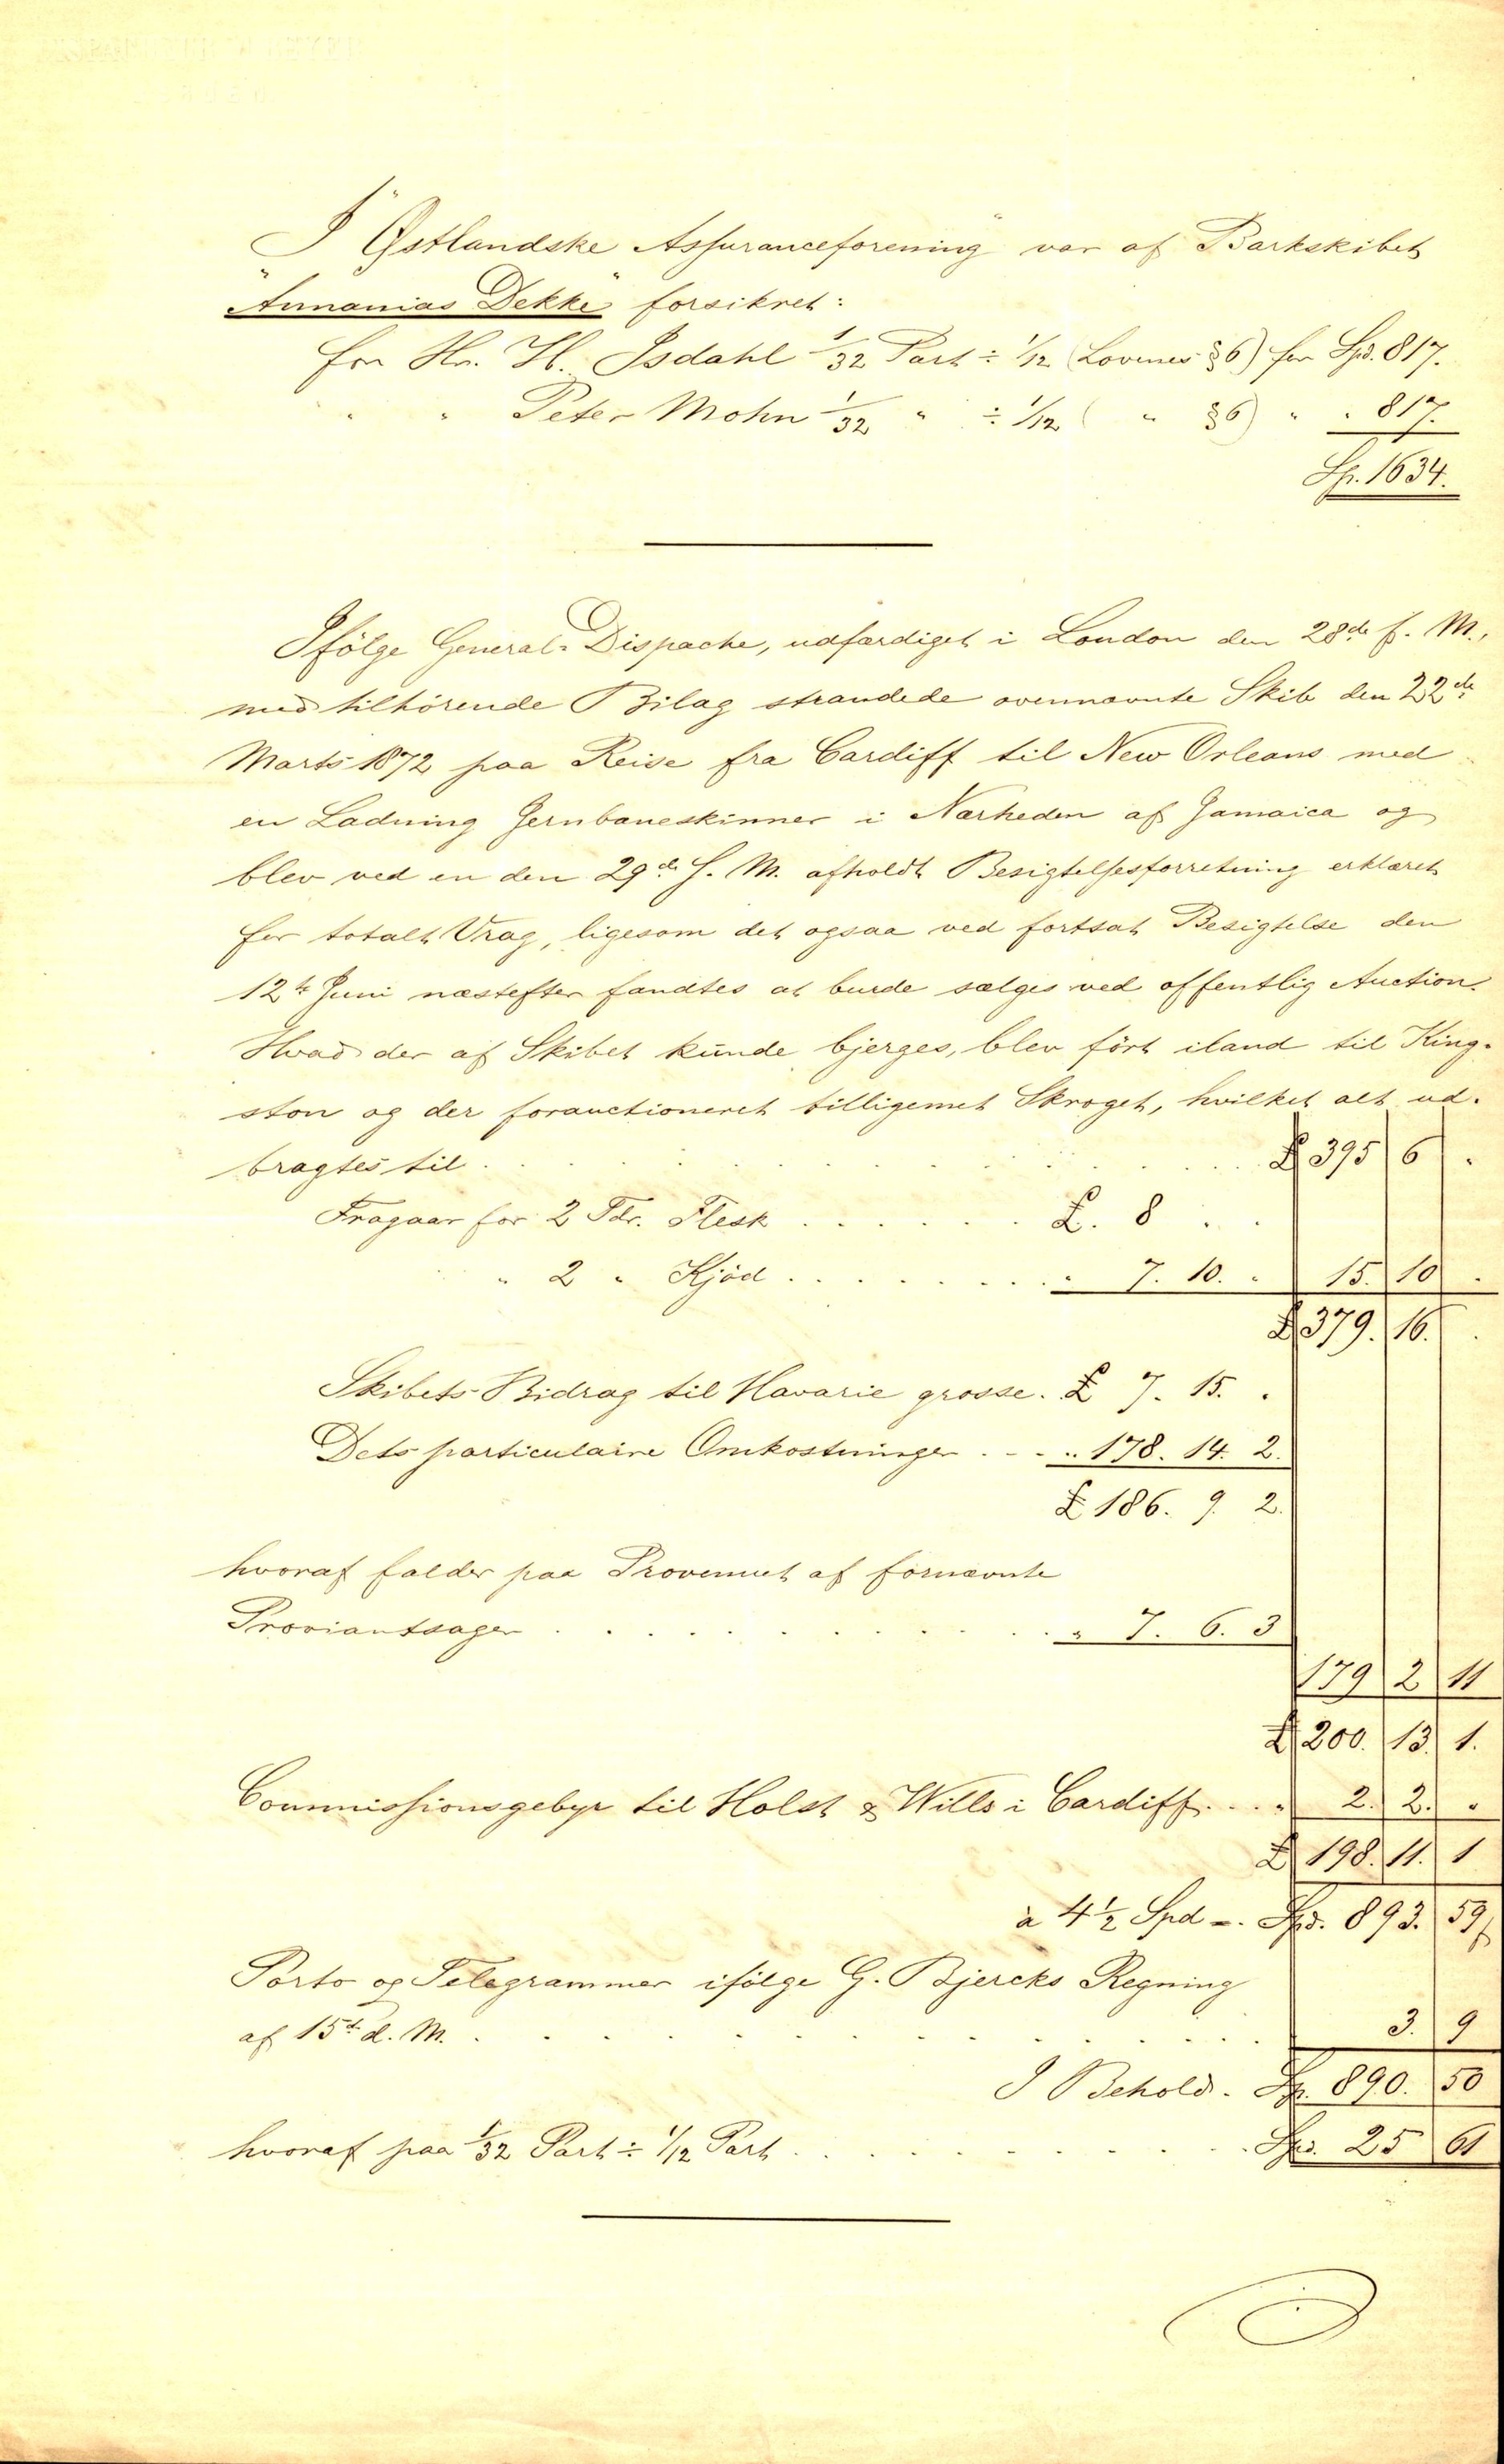 I "Østlandske Assuranceforening" var af Barkskibet
"Annanias Dekke" forsikret:
for Hr. H. Isdahl 1/32 Part ÷ 1/12 (Lovenes §6) for Spd. 817.
" " Peter Mohn 1/32 " ÷ 1/12 ( " §6) " " 817.
Sp. 1634.
Ifölge General-Dispache, udfærdiget i London den 28de f. M.,
med tilhörende Bilag strandede ovennævnte Skib den 22de
Marts 1872 paa Reise fra Cardiff til New Orleans med
en Ladning Jernbaneskinner i Nærheden af Jamaica og
blev ved en den 29de s. M. afholdt Besigtelsesforretning erklæret
for totalt Vrag, ligesom det ogsaa ved fortsat Besigtelse den
12te Juni næstefter fandtes at burde sælges ved offentlig Auction.
Hvad der af Skibet kunde bjerges, blev fört iland til King-
ston og der forauctioneret tilligemet Skroget, hvilket alt ud-
bragtes til . . . . . £ 395 6 .
Fragaar for 2 Tdr. Flesk . . . . . . £. 8 . .
" 2 " Kjöd . . . . . . . . " 7. 10. . 15. 10 .
£ 379. 16. .
Skibets Bidrag til Havarie grosse. £ 7. 15. .
Dets particulaire Omkostninger . . . " 178. 14. 2.
£ 186. 9. 2.
hvoraf falder paa Provenuet af fornævnte
Proviantsager . . . . . . . . . " 7. 6. 3
179 2 11
£ 200. 13. 1.
Commissionsgebyr til Holst & Wills i Cardiff . . . " 2. 2. "
£ 198. 11. 1
à 4 1/2 Spd =. Spd. 893. 59
Porto og Telegrammer ifölge G. Bjercks Regning
af 15de d. M. . . . . . . . . . . 3. 9
I Behold. Sp. 890. 50
hvoraf paa 1/32 Part ÷ 1/12 Part . . . . . . . Spd. 25 61